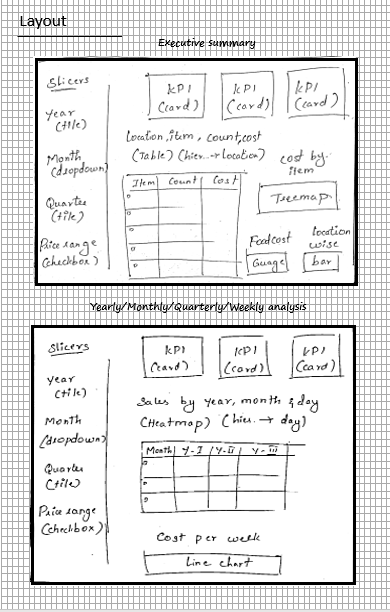 Layout
Executive Summary
Slicers
Year
(tile)
Month
(dropdown)
Quarter
(tile)
Price range
(checkbox)
KPI
(card)
KPI
(card)
KPI
(card)
Location, item, count, cost
(Table) (hier.. → location)
Item Count Cost
cost by
item
Treemap
Food cost
Guage
location
wise
bar
Yearly/Monthly/Quarterly/Weekly analysis
Slicers
Year
(tile)
Month
(dropdown)
Quarter
(tile)
Price range
(checkbox)
KPI
(card)
KPI
(card)
KPI
(card)
Sales by year, month & day
(Heatmap) (hier. → day)
Month Y-I Y-II Y-III
Cost per week
Line chart